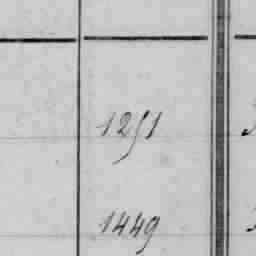 1251
1449